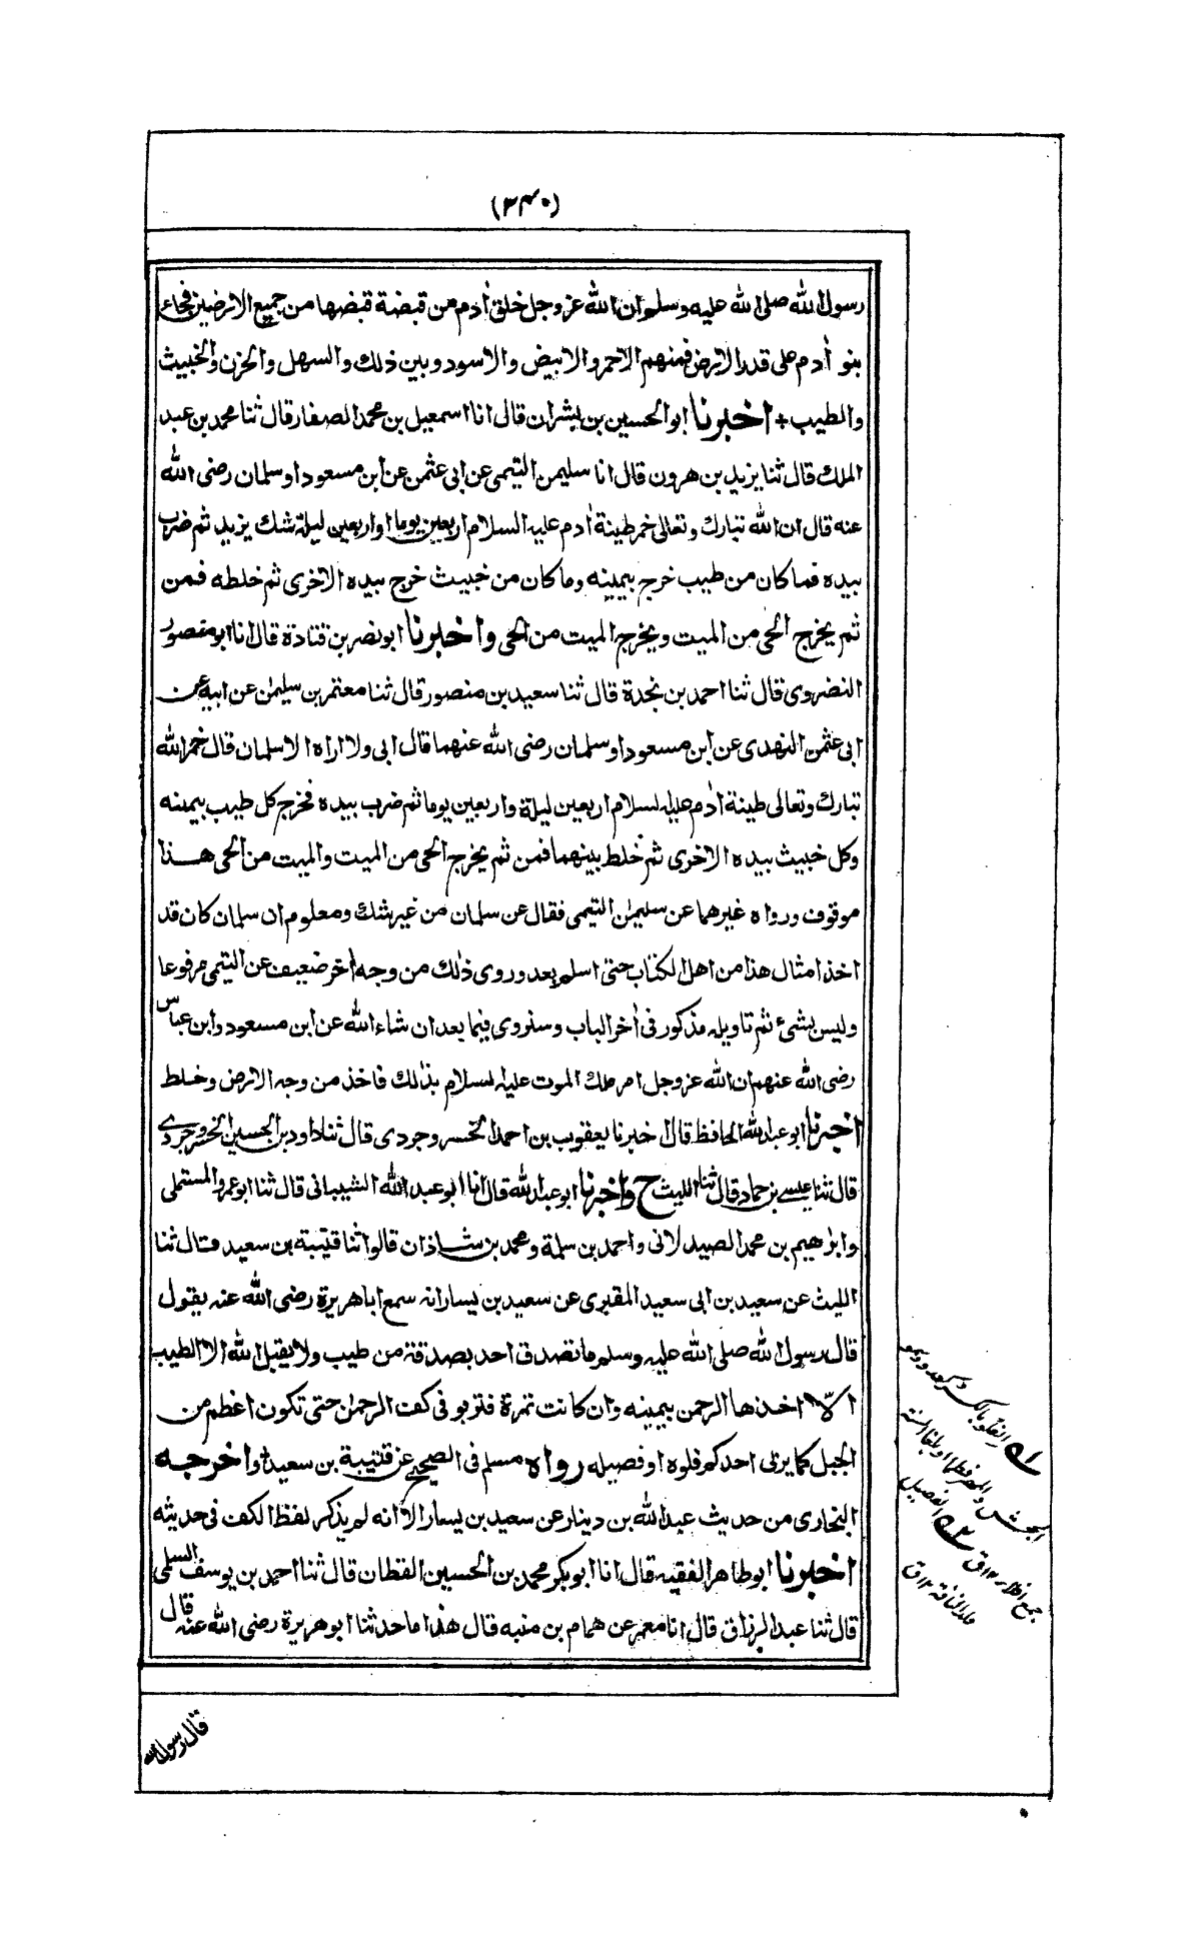 (٢٤٠)
رسول الله صلى الله عليه وسلم ان الله عز وجل خلق اٰدم من قبضة قبضها من جميع الارضين فجاء
بنو اٰدم على قدر الارض فمنهم الاحمر والابيض والاسود وبين ذلك والسهل والحزن والخبيث
والطيب + اخبرنا ابو الحسين بن بشران قال انا اسمعيل بن محمد الصفار قال ثنا محمد بن عبد
الملك قال ثنا يزيد بن هرون قال انا سليمن التيمى عن ابى عثمن عن ابن مسعود او سلمان رضى الله
عنه قال ان الله تبارك وتعالى خمر طينة اٰدم عليه السلام اربعين يوما او اربعين ليلة شك يزيد ثم ضرب
بيده فما كان من طيب خرج بيمينه وما كان من خبيث خرج بيده الاخرى ثم خلطه فمن
ثم يخرج الحى من الميت ويخرج الميت من الحى واخبرنا ابو نصر بن قتادة قال انا ابو منصور
النضروى قال ثنا احمد بن نجدة قال ثنا سعيد بن منصور قال ثنا معتمر بن سليمٰن عن ابيه عن
ابى عثمن النهدى عن ابن مسعود او سلمان رضى الله عنهما قال ابى ولا اراه الا سلمان قال خمر الله
تبارك وتعالى طينة اٰدم عليه السلام اربعين ليلة واربعين يوما ثم ضرب بيده فخرج كل طيب بيمينه
وكل خبيث بيده الاخرى ثم خلط بينهما فمن ثم يخرج الحى من الميت والميت من الحى هذا
موقوف ورواه غيرهما عن سليمٰن التيمى فقال عن سلمان من غير شك ومعلوم ان سلمان كان قد
اخذ امثال هذا من اهل الكتاب حتى اسلم بعد وروى ذٰلك من وجه اٰخر ضعيف عن التيمى مرفوعا
وليس بشئ ثم تاويله مذكور فى اٰخر الباب وسنروى فيما بعد ان شاء الله عن ابن مسعود وابن عباس
رضى الله عنهم ان الله عز وجل امر ملك الموت عليه السلام بذٰلك فاخذ من وجه الارض وخلط
اخبرنا ابو عبد الله الحافظ قال اخبرنا يعقوب بن احمد الخسروجردى قال ثنا داود بن الحسين الخسروجردى
قال ثنا عيسى بن حماد قال ثنا الليث ح واخبرنا ابو عبد الله قال انا ابو عبد الله الشيبانى قال ثنا ابو عمرو المستملى
وابرٰهيم بن محمد الصيدلانى واحمد بن سلمة ومحمد بن شاذان قالوا ثنا قتيبة بن سعيد قال ثنا
الليث عن سعيد بن ابى سعيد المقبرى عن سعيد بن يسار انه سمع ابا هريرة رضى الله عنه يقول
قال رسول الله صلى الله عليه وسلم ما تصدق احد بصدقة من طيب ولا يقبل الله الا الطيب
الا اخذها الرحمن بيمينه وان كانت تمرة فتربو فى كف الرحمٰن حتى تكون اعظم من
الجبل كما يربى احدكم فلوه او فصيله رواه مسلم فى الصحيح عن قتيبة بن سعيد واخرجه
البخارى من حديث عبد الله بن دينار عن سعيد بن يسار الا انه لم يذكر لفظ الكف فى حديثه
اخبرنا ابو طاهر الفقيه قال انا ابو بكر محمد بن الحسين القطان قال ثنا احمد بن يوسف السلمى
قال ثنا عبد الرزاق قال انا معمر عن همام بن منبه قال هذا ما حدثنا ابو هريرة رضى الله عنه قال
لـه الفلو بالكسر وكعدو وسمو
الجحش والمهر فطما او بلغا السنة
جمع افلاء ١٢ ق لـه الفصيل
ولد الناقة ١٢ ق
قال رسول الله